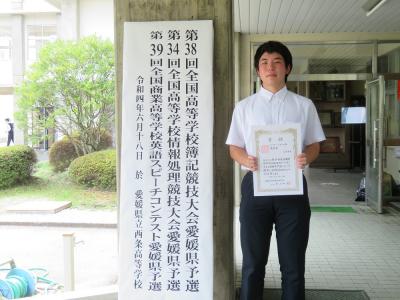 第38回全国高等学校簿記競技大会愛媛県予選
第34回全国高等学校情報処理競技大会愛媛県予選
第39回全国商業高等学校英語スピーチコンテスト愛媛県予選
令和四年六月十八日 於 愛媛県立西条高等学校
賞状